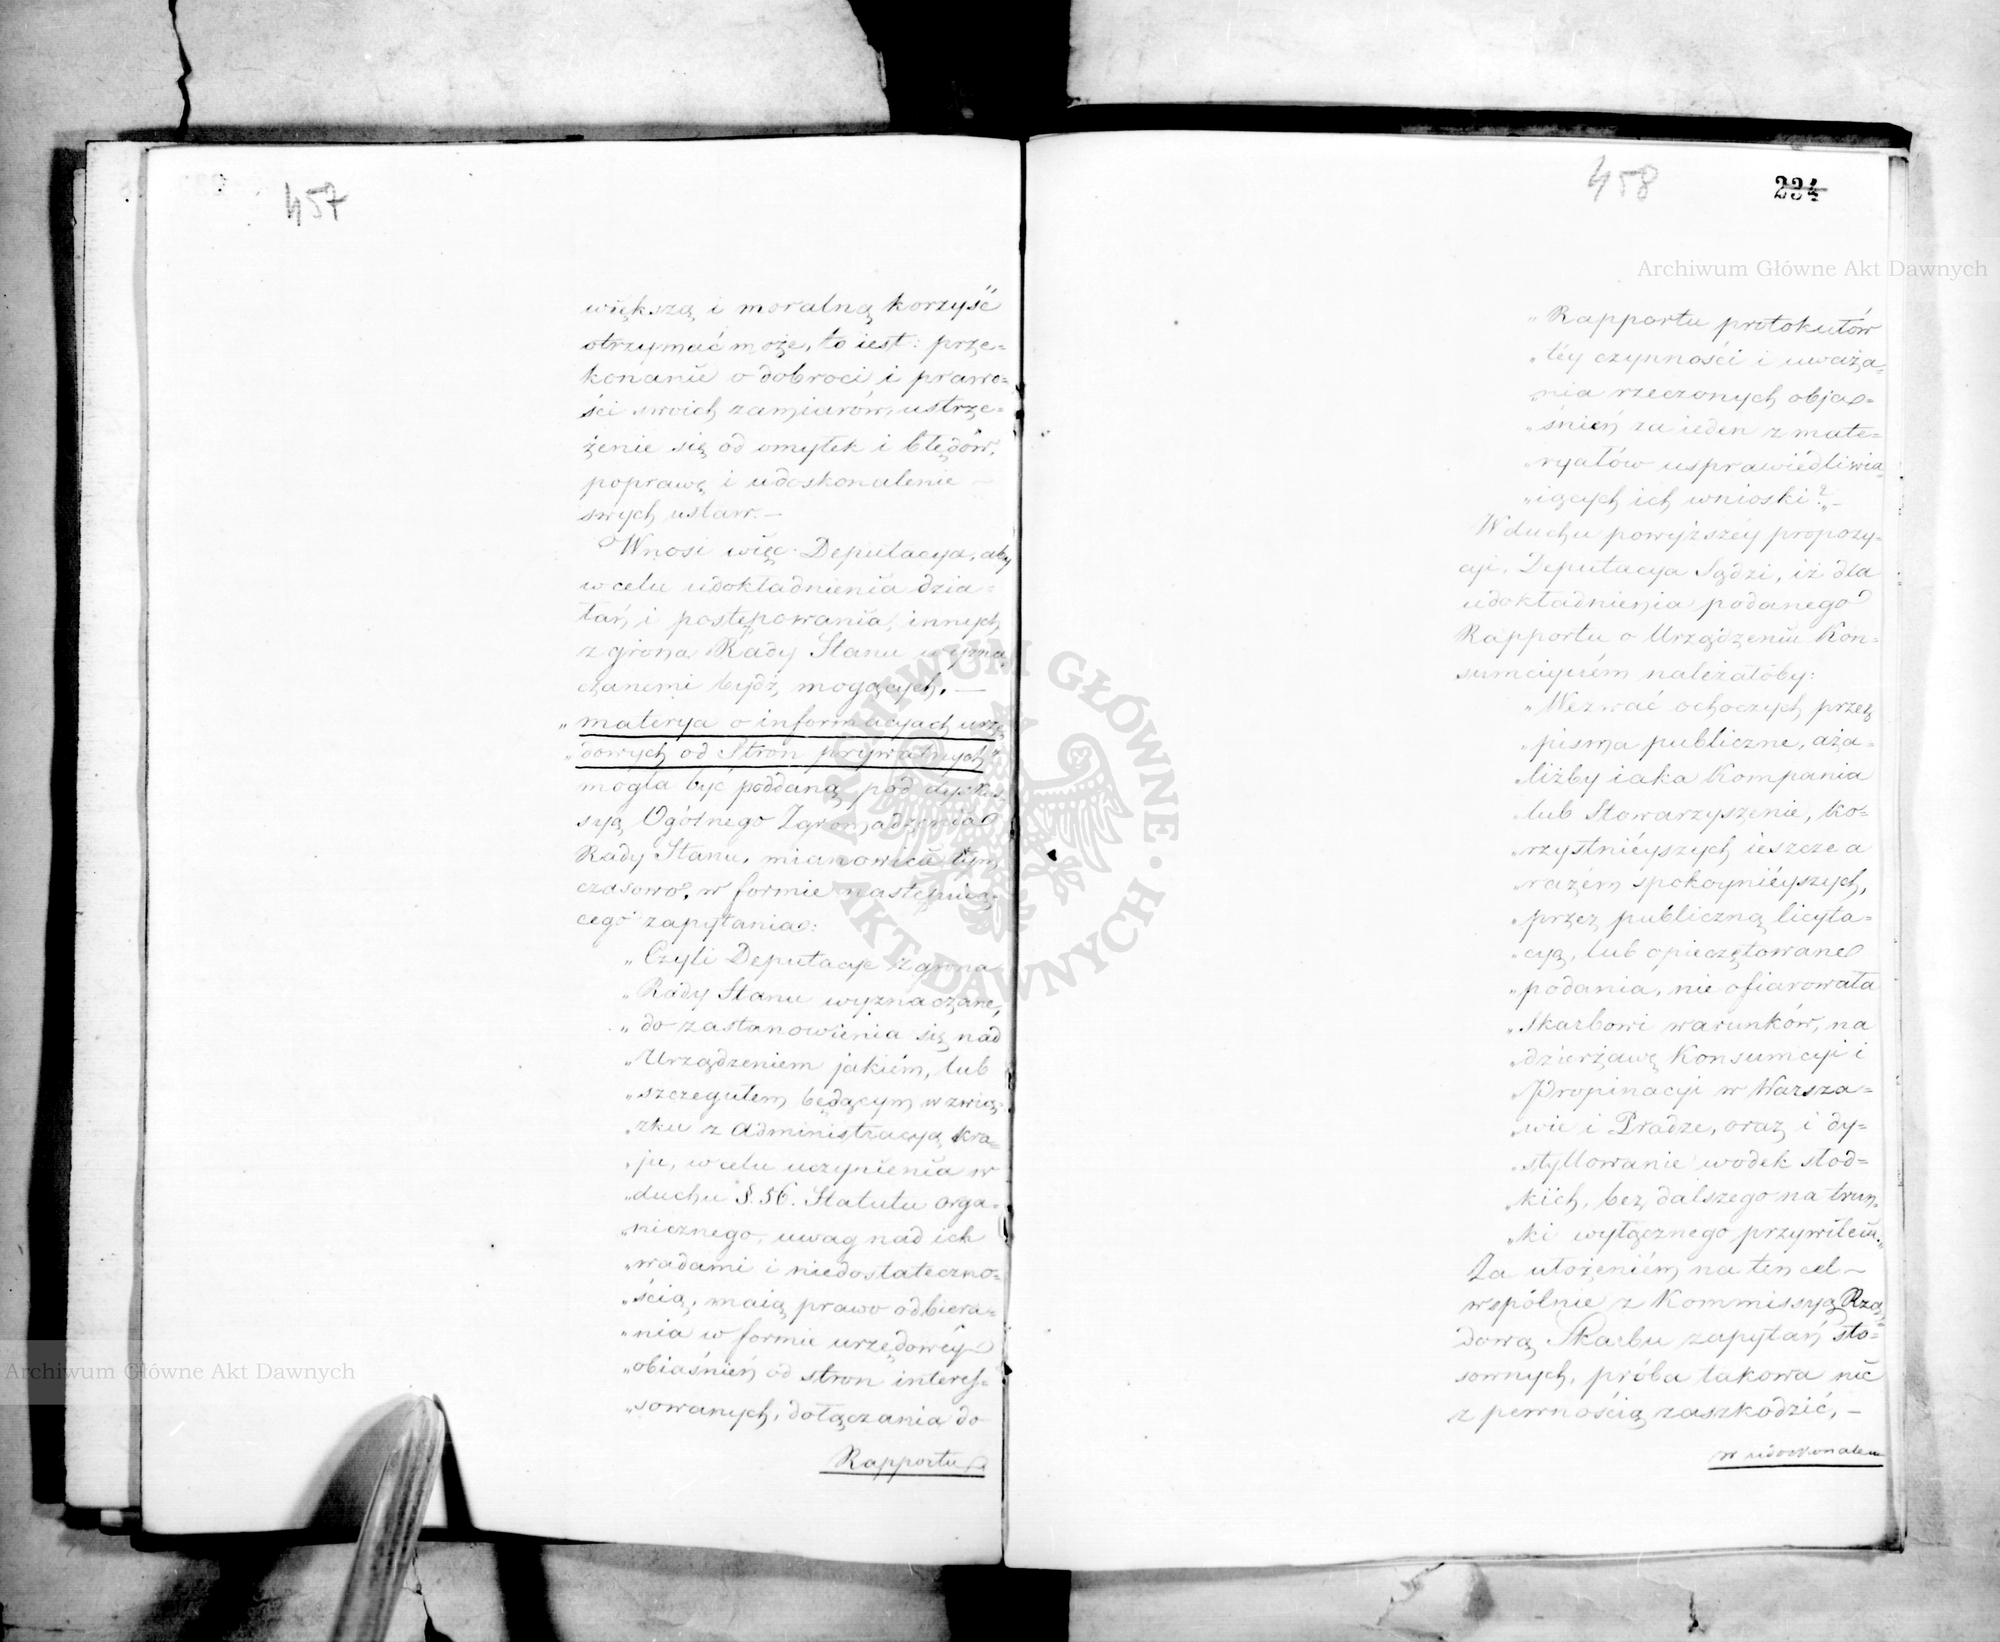 457
większą i moralną korzyść
otrzymać może, to iest: prze-
konanie o dobroci i prawo-
ści swoich zamiarów, ustrze-
żenie się od omyłek i błędów,
poprawę i udoskonalenie —
swych ustaw. —
Wnosi więc Deputacya, aby
w celu udokładnienia dzia-
łań i postępowania, innych
z grona Rady Stanu wyzna
czanemi bydź mogących, —
„materya o informacyach urzę
„dowych od Stron prywatnych"
mogła być poddaną pod dyskus-
syą Ogólnego Zgromadzenia
Rady Stanu, mianowicie tym
czasowo, w formie następuią-
cego zapytania:
„Czyli Deputacye z grona
„Rady Stanu wyznaczane,
„do zastanowienia się nad
„Urządzeniem jakiém, lub
„szczegułem będącym w zwią-
„zku z administracyą kra-
„ju, w celu uczynienia w
„duchu §. 56. Statutu orga-
„nicznego, uwag nad ich
„wadami i niedostateczno-
„ścią, maią prawo odbiera-
„nia w formie urzędowéy
„obiaśnień od stron interes-
„sowanych, dołączania do
Rapportu
458
234
„Rapportu protokułów
„téy czynności i uważa-
„nia rzeczonych obja-
„śnień za ieden z mate-
„ryałów usprawiédliwia
„iących ich wnioski?" —
W duchu powyższéy propozy-
cji, Deputacya Sądzi, iż dla
udokładnienia podanego
Rapportu o Urządzeniu Kon-
sumcyiném należałoby:
„Wezwać ochoczych przez
„pisma publiczne, aża-
„liżby iaka Kompania
„lub Stowarzyszenie, ko-
„rzystniéyszych ieszcze a
„razém spokoyniéyszych,
„przez publiczną licyta-
„cyą, lub opieczętowane
„podania, nie ofiarowała
„Skarbowi warunków, na
„dzierżawę Konsumcyi i
„Propinacyi w Warsza-
„wie i Pradze, oraz i dy-
„styllowanie wodek słod-
„kich, bez dalszego na trun-
„ki wyłącznego przywileiu."
Za ułożeniém na ten cel —
wspólnie z Kommissyą Rzą
dową Skarbu zapytań sto-
sownych, próba takowa nic
z pewnością zaszkodzić, —
w udoskonaleniu
Archiwum Główne Akt Dawnych
Archiwum Główne Akt Dawnych
ARCHIWUM GŁÓWNE · AKT DAWNYCH ·